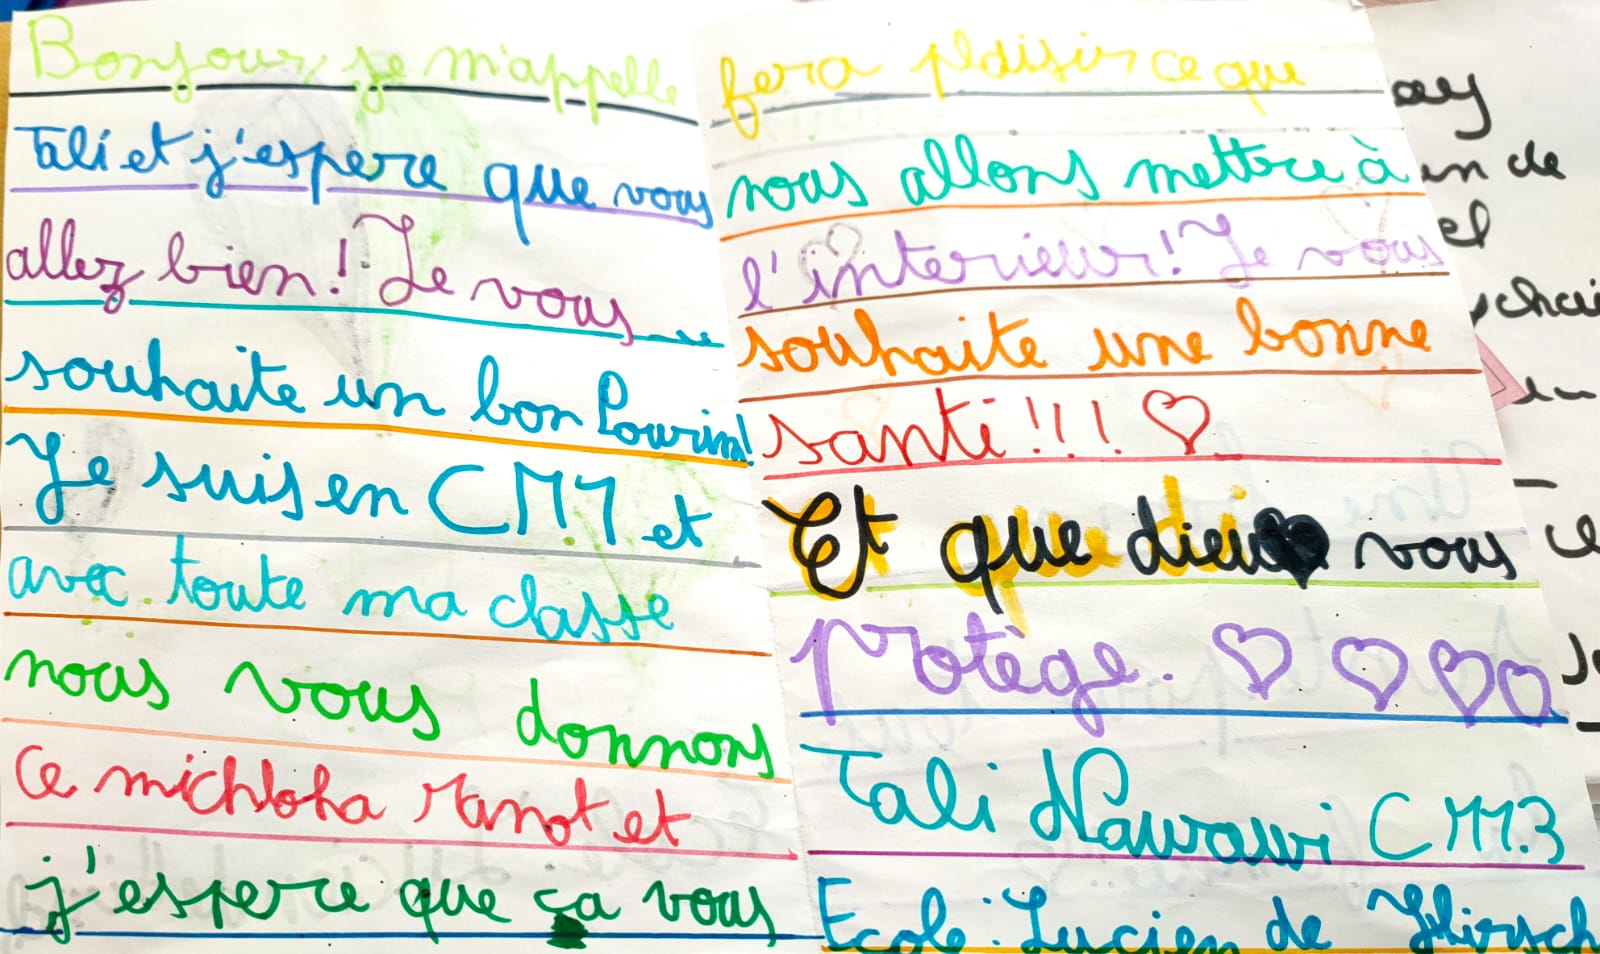 Bonjour, je m'appelle
Tali et j'espere que vous
allez bien! Je vous
souhaite un bon Pourim!
Je suis en CM1 et
avec toute ma classe
nous vous donnons
ce michloha manot et
j'espere que ça vous
fera plaisir ce que
nous allons mettre à
l'interieur! Je vous
souhaite une bonne
santé!!! ♡
Et que dieu vous
protège. ♡ ♡ ♡ ♡
Tali Nawawi CM1.3
Ecole: Lucien de Hirsch
ay
un de
el